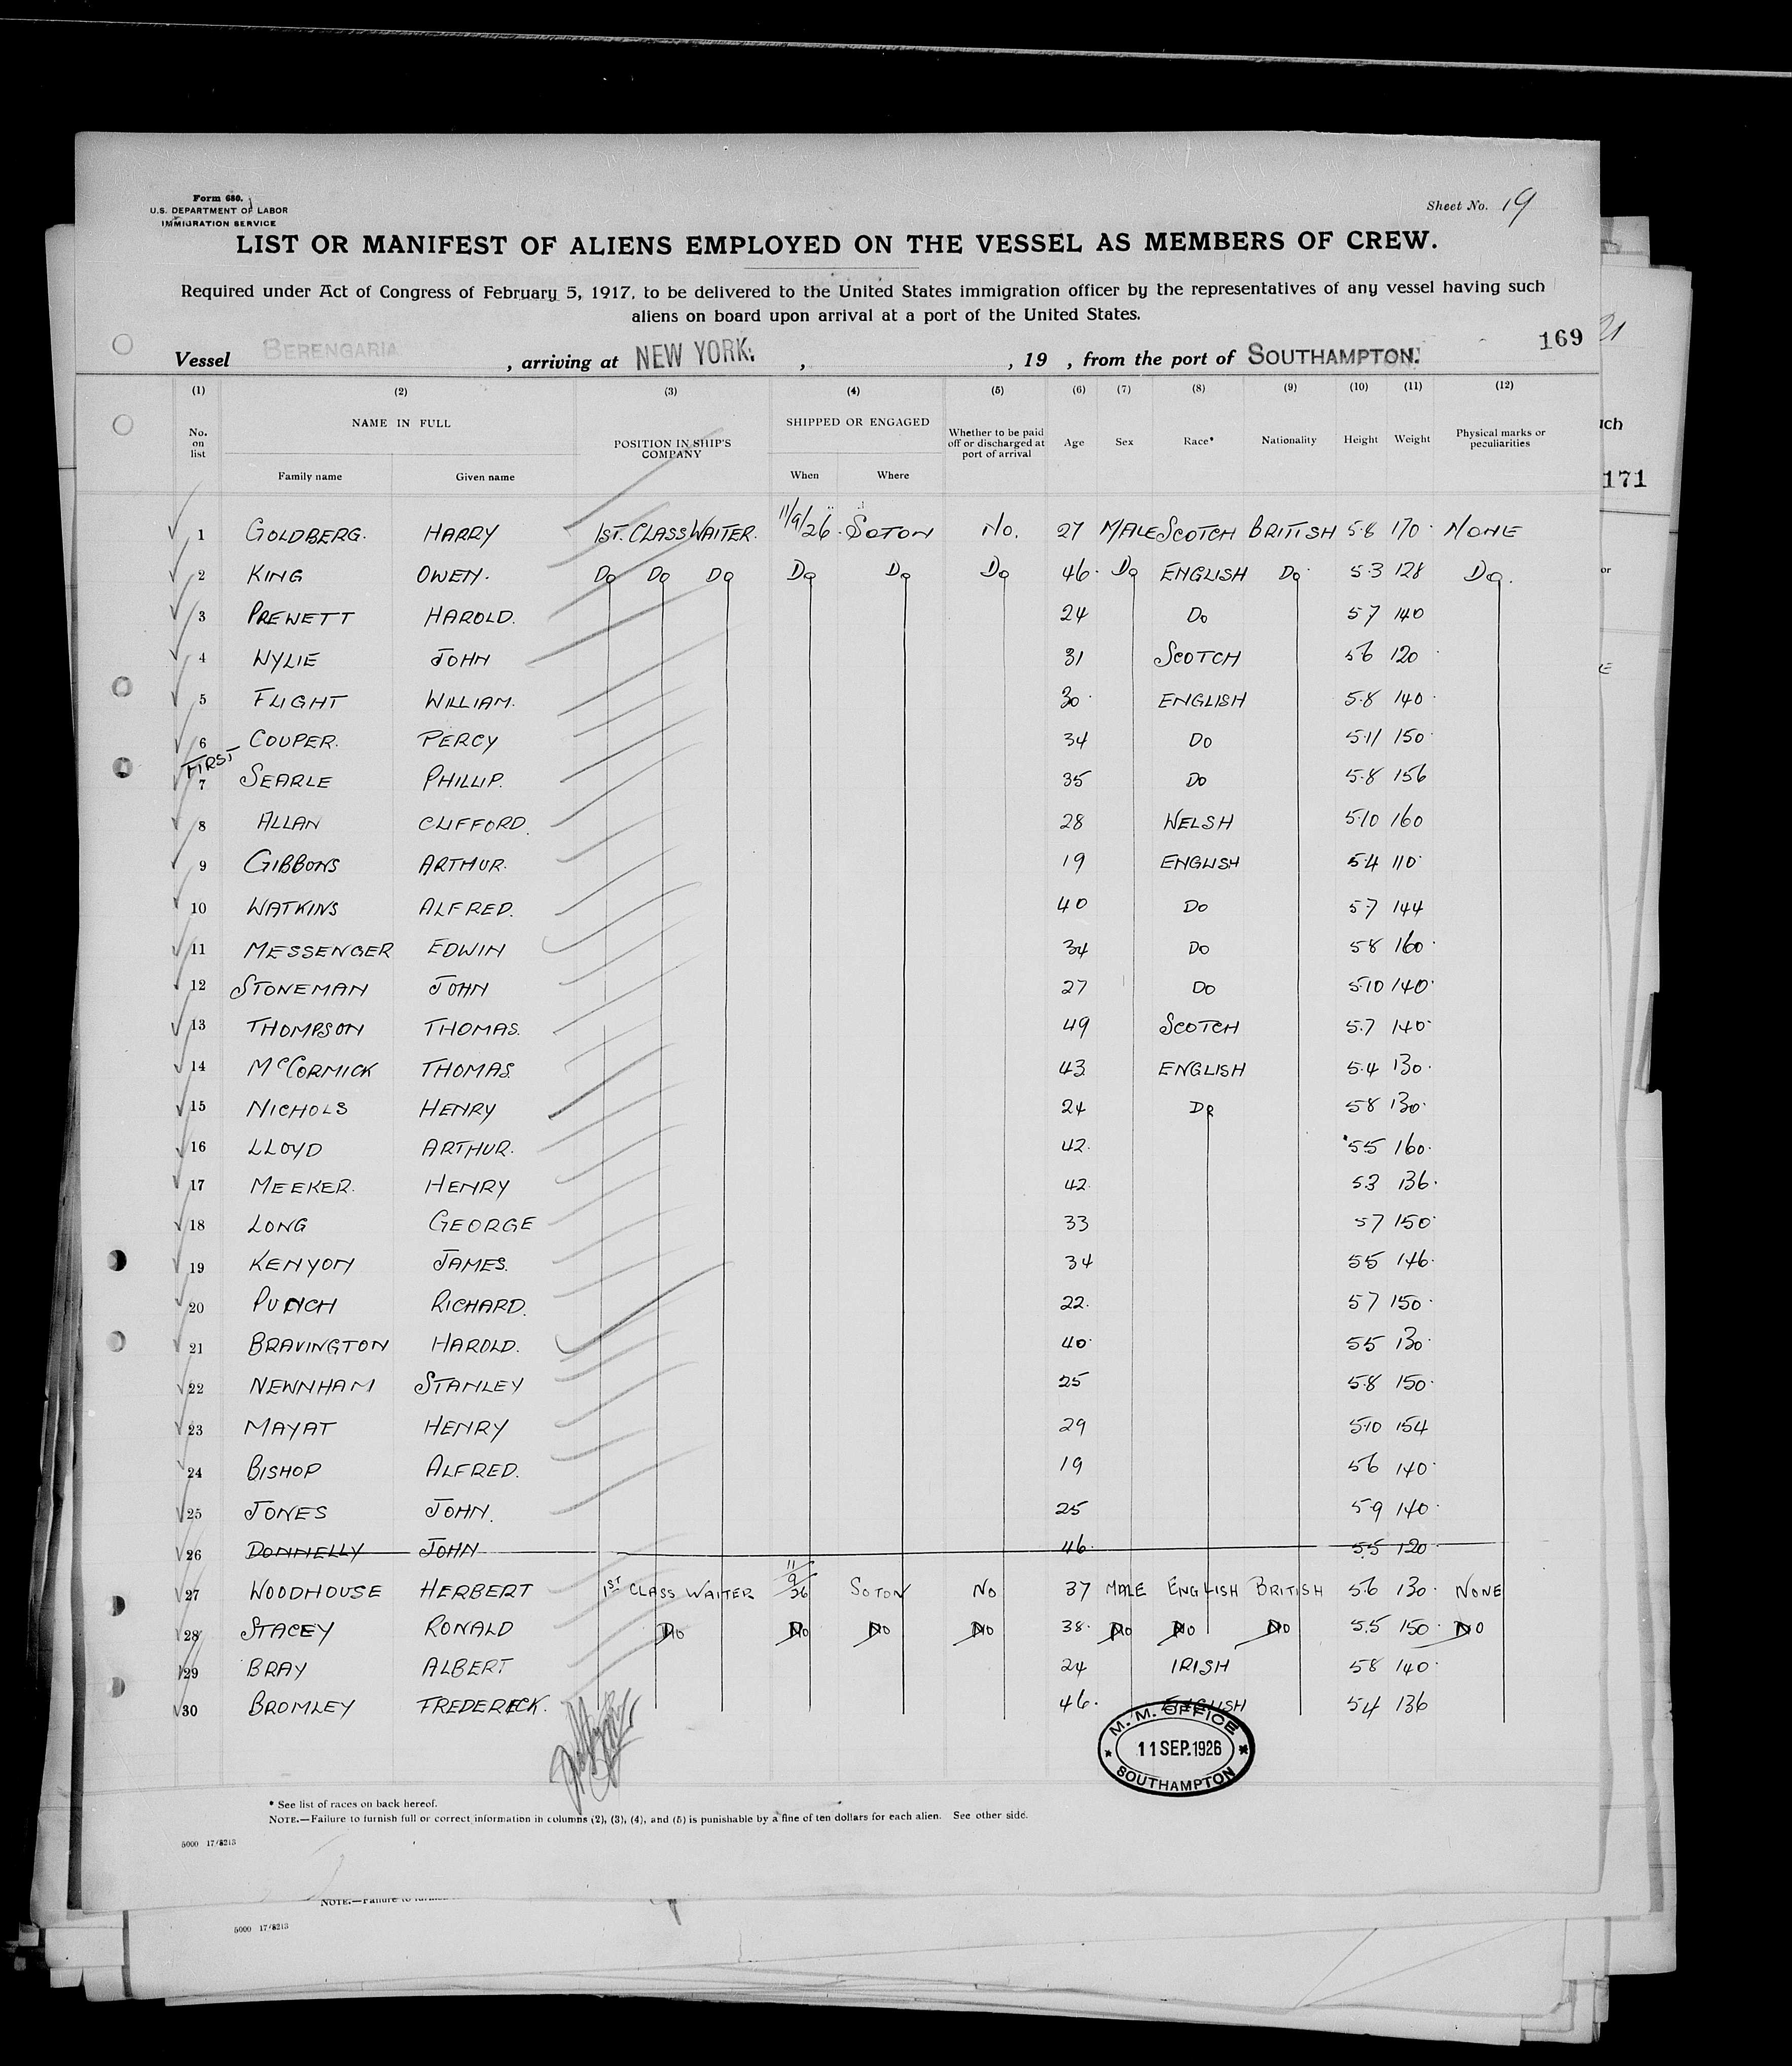 Form 680.
U.S. DEPARTMENT OF LABOR
IMMIGRATION SERVICE
Sheet No. 19
LIST OR MANIFEST OF ALIENS EMPLOYED ON THE VESSEL AS MEMBERS OF CREW.
Required under Act of Congress of February 5, 1917, to be delivered to the United States immigration officer by the representatives of any vessel having such
aliens on board upon arrival at a port of the United States.
169
Vessel BERENGARIA, arriving at NEW YORK., , 19 , from the port of SOUTHAMPTON.
(1) (2) (3) (4) (5) (6) (7) (8) (9) (10) (11) (12)
No. on list NAME IN FULL POSITION IN SHIP'S COMPANY SHIPPED OR ENGAGED Whether to be paid off or discharged at port of arrival Age Sex Race* Nationality Height Weight Physical marks or peculiarities
Family name Given name When Where
1 GOLDBERG. HARRY 1ST. CLASS WAITER. 11/9/26 SOTON NO. 27 MALE SCOTCH BRITISH 5.8 170 NONE
2 KING OWEN. DO DO DO DO DO DO 46 DO ENGLISH DO 5.3 128 DO.
3 PREWETT HAROLD. 24 DO 5 7 140
4 WYLIE JOHN 31 SCOTCH 5 6 120
5 FLIGHT WILLIAM. 30 ENGLISH 5.8 140
6 COUPER. PERCY 34 DO 5.11 150
FIRST
7 SEARLE PHILLIP. 35 DO 5.8 156
8 ALLAN CLIFFORD. 28 WELSH 5.10 160
9 GIBBONS ARTHUR. 19 ENGLISH 5.4 110
10 WATKINS ALFRED. 40 DO 5.7 144
11 MESSENGER EDWIN 34 DO 5 8 160
12 STONEMAN JOHN 27 DO 5.10 140
13 THOMPSON THOMAS. 49 SCOTCH 5.7 140
14 McCORMICK THOMAS. 43 ENGLISH 5.4 130
15 NICHOLS HENRY 24 DO 5 8 130
16 LLOYD ARTHUR. 42 5.5 160
17 MEEKER. HENRY 42 5.3 136
18 LONG GEORGE 33 5 7 150
19 KENYON JAMES. 34 5 5 146
20 PUNCH RICHARD. 22 5 7 150
21 BRAVINGTON HAROLD. 40 5 5 130
22 NEWNHAM STANLEY 25 5.8 150
23 MAYAT HENRY 29 5.10 154
24 BISHOP ALFRED. 19 5 6 140
25 JONES JOHN. 25 5.9 140
26 DONNELLY JOHN 46 5.5 120
27 WOODHOUSE HERBERT 1ST CLASS WAITER 11/9/26 SOTON NO 37 MALE ENGLISH BRITISH 5.6 130 NONE
28 STACEY RONALD DO DO DO DO 38 DO DO DO 5.5 150 DO
29 BRAY ALBERT 24 IRISH 5 8 140
30 BROMLEY FREDERICK. 46 ENGLISH 5 4 136
M. M. OFFICE
11 SEP. 1926
SOUTHAMPTON
* See list of races on back hereof.
NOTE.—Failure to furnish full or correct information in columns (2), (3), (4), and (5) is punishable by a fine of ten dollars for each alien. See other side.
5000 17/8213
NOTE.—Failure to
5000 17/8213
21
171